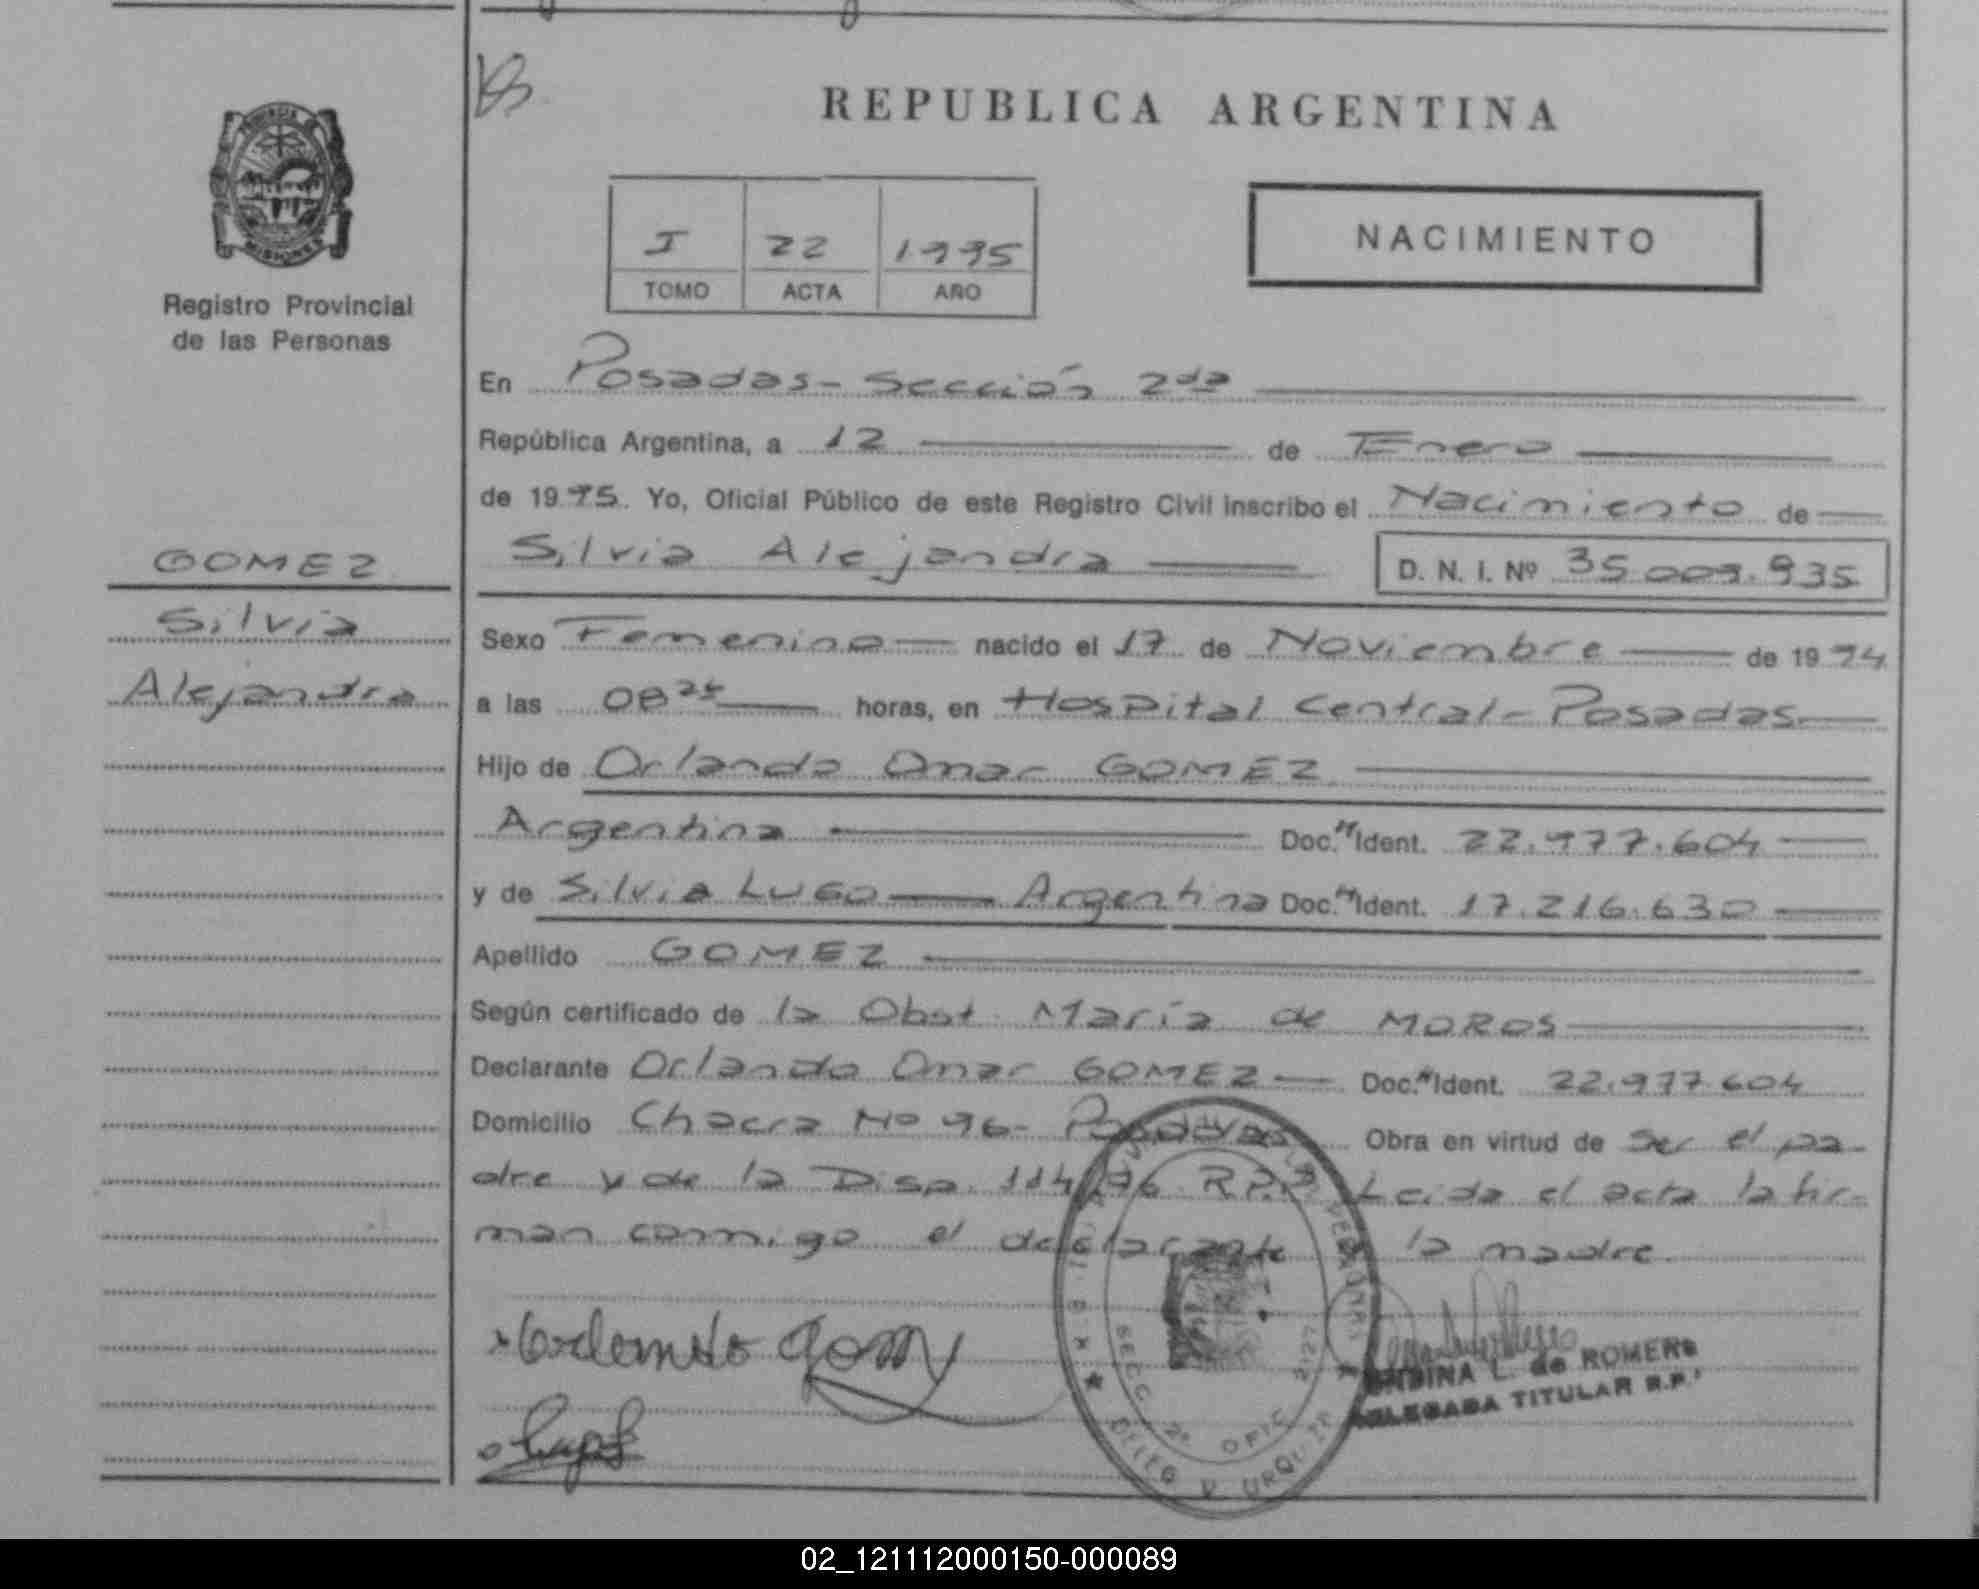 REPUBLICA ARGENTINA
PROVINCIA DE
MISIONES
Registro Provincial
de las Personas
I 22 1995
TOMO ACTA AÑO
NACIMIENTO
En Posadas - Sección 2da
República Argentina, a 12 de Enero
de 1995. Yo, Oficial Público de este Registro Civil inscribo el Nacimiento de
Silvia Alejandra D. N. I. Nº 35.009.935
GOMEZ
Silvia
Alejandra
Sexo Femenino nacido el 17 de Noviembre de 1994
a las 08 25 horas, en Hospital Central - Posadas
Hijo de Orlando Omar GOMEZ
Argentina Doc. Ident. 22.977.604
y de Silvia LUGO Argentina Doc. Ident. 17.216.630
Apellido GOMEZ
Según certificado de la Obst. María de MOROS
Declarante Orlando Omar GOMEZ Doc. Ident. 22.977.604
Domicilio Chacra Nº 96 - Posadas Obra en virtud de ser el pa-
dre y de la Disp. 114/96 R.P.P. Leida el acta la fir-
man conmigo el declarante la madre.
SECC. 2ª OFIC
DELEG V. URQUIZA
L. de ROMERO
DELEGADA TITULAR R.P.
02_121112000150-000089